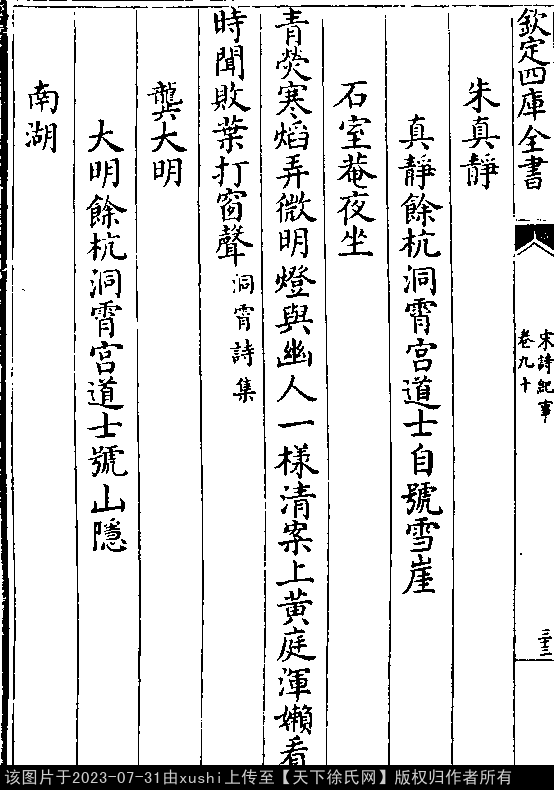 欽定四庫全書
宋詩紀事
卷九十
三十三
朱真靜
真靜餘杭洞霄宫道士自號雪崖
石室菴夜坐
青熒寒焰弄微明燈與幽人一樣清案上黃庭渾嬾看
時聞敗葉打窗聲洞霄詩集
龔大明
大明餘杭洞霄宫道士號山隱
南湖
该图片于2023-07-31由xushi上传至【天下徐氏网】版权归作者所有